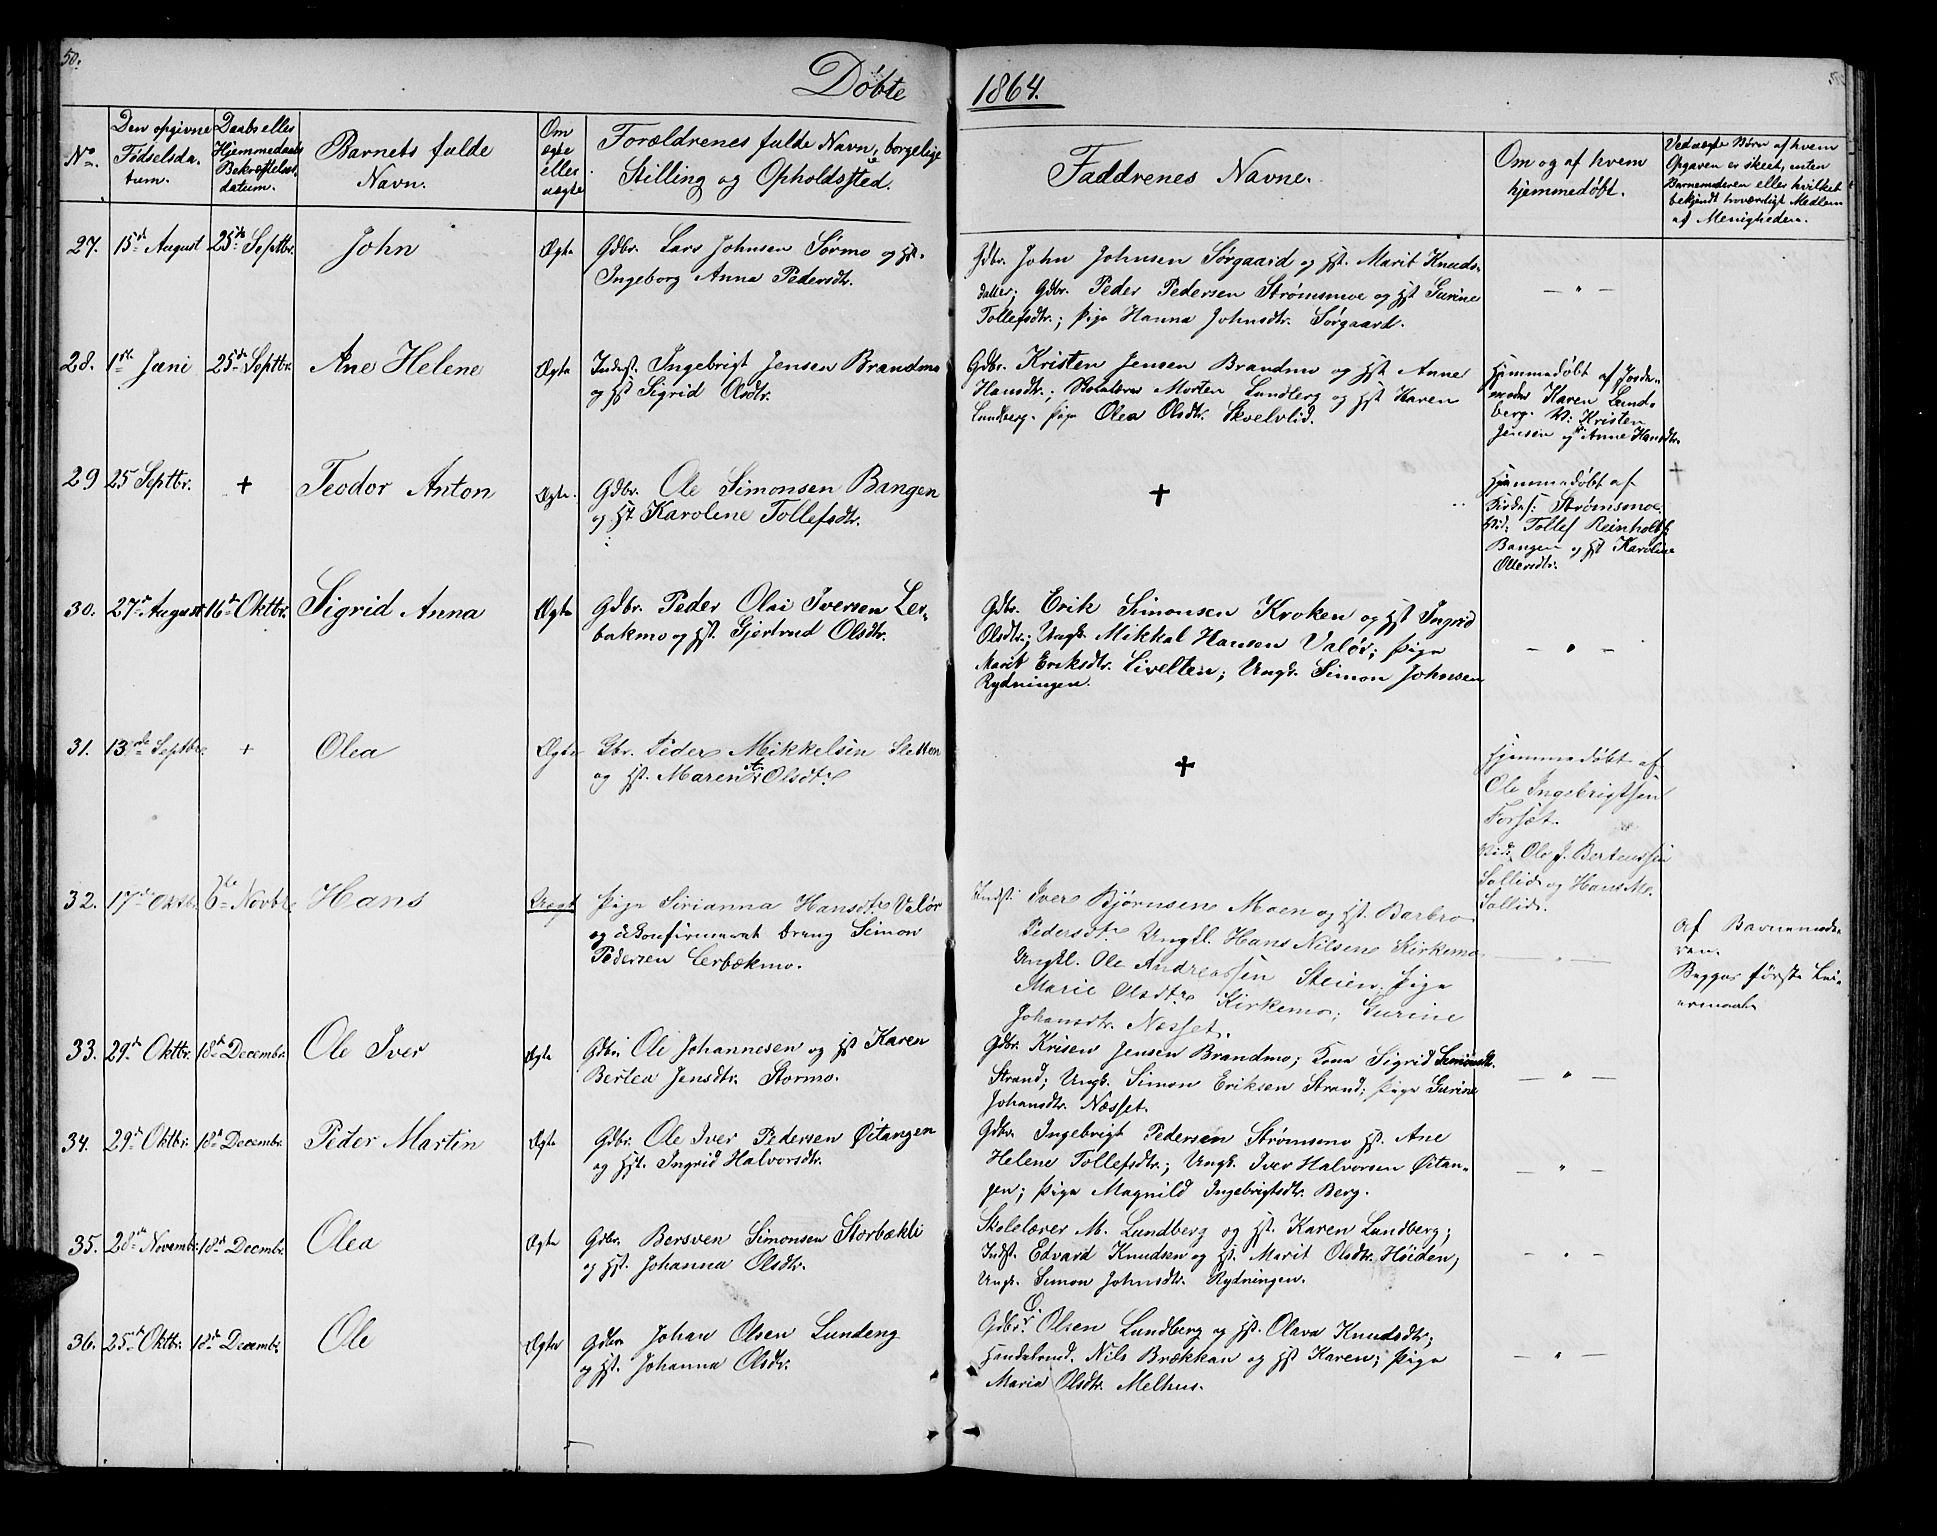 50.
Døbte
1864.
No.
Den opgivne Fødselsdatum.
Daabs eller Hjemmedaabs Bekræftelsesdatum.
Barnets fulde Navn.
Om ægte eller uægte
Forældrenes fulde Navn, borgelige Stilling og Opholdssted.
Faddrenes Navne.
Om og af hvem hjemmedøbt.
Ved uægte Børn af hvem Opgaven er skeet, enten Barnemoderen eller hvilket bekjendt troværdigt Medlem af Menigheden.
27. 15de August 25de Septbr. John Ægte
Gdbr. Lars Johnsen Sørmo og Hst.
Ingeborg Anna Pedersdtr.
Gdbr. John Johnsen Sørgaard og Hst. Marit Knuds-
datter; Gdbr. Peder Pedersen Strømsmoe og Hst Gurine
Tollefsdtr.; Pige Hanna Johnsdtr. Sørgaard.
— " —
28. 1ste Juni 25de Septbr. Ane Helene Ægte
Inderst. Ingebrigt Jensen Brandmo
og Hst Sigrid Olsdtr.
Gdbr. Kristen Jensen Brandmo og Hst Anne
Hansdtr.; Morten Lundberg og Hst Karen
Lundberg. Pige Olea Olsdtr. Skvelvlid.
Hjemmedøbt af Jorde-
moder Karen Lund-
berg. V: Kristen
Jensen og Anne Hansdtr.
29 25 Septbr. + Teodor Anton Ægte.
Gdbr. Ole Simonsen Bangen
og Hst Karolene Tollefsdtr.
+
Hjemmedøbt af
Kirkes: Strømsmoe.
Vid: Tollef Reinholts.
Bangen og Hst Karoline
Olersdtr.
+
30. 27de August 16de Oktbr. Sigrid Anna Ægte
Gdbr. Peder Olai Iversen Ler-
bakmo og Hst. Gjertrud Olsdtr.
Gdbr. Erik Simonsen Kroken og Hst Ingrid
Olsdtr.; Ungk. Mikkal Hansen Valør; Pige
Marit Eriksdtr. Livelten; Ungk. Simon Johnsen
Rydningen.
— " —
31. 13de Septbr. + Olea Ægte
Gbr. Peder Mikkelsen Sletten
og Hst. Maren A. Olsdtr
+
Hjemmedøbt af
Ole Ingebrigtsen
Forset.
Vid: Ole J. Bertenssen
Sollid og Hans M.
Sollid.
32. 17de Oktbr. 6te Novbr. Hans Uægte
Pige Sirianna Hansdtr Valør
og ukonfirmerat Dreng Simon
Pedersen Lerbækmo.
Indst: Iver Bjørnsen Moen og Hst. Barbro
Pedersdtr. Ungkl. Hans Nilsen Kirkemo.
Ungkl. Ole Andreassen Steien. Pige
Marie Olsdtr Kirkemo; Gurine
Johansdtr. Næsset.
— " —
Af Barnemode-
ren.
Begges første Lei-
ermaal.
33. 29de Oktbr. 18de Decembr. Ole Iver Ægte
Gdbr. Ole Johannesen og Hst Karen
Berlea Jensdtr. Stormo.
Gdbr. Krisen Jensen Brandmo; Kona Sigrid Simonsdtr.
Strand; Ungk. Simon Eriksen Strand; Pige Gurine
Johansdtr. Næsset.
— " —
34. 29de Oktbr. 18de Decembr. Peder Martin Ægte
Gdbr. Ole Iver Pedersen Øitangen
og Hst. Ingrid Halvorsdtr.
Gdbr. Ingebrigt Pedersen Strømsmo Hst. Ane
Helene Tollefsdtr.; Ungk. Iver Halvorsen Øitan-
gen; Pige Magnild Ingebrigtsdtr. Berg.
— " —
35. 28de Novembr. 18de Decmbr. Olea Ægte
Gdbr. Bersven Simonsen Storbækli
og Hst. Johanna Olsdtr.
Skolelærer M. Lundberg og Hst. Karen Lundberg;
Indst. Edvard Knudsen og Hst. Marit Olsdtr. Høiden,
Ungk. Simon Johnsdtr. Rydningen.
— " —
36. 25de Oktbr. 18de Decembr. Ole Ægte
Gdbr Johan Olsen Lundeng
og Hst. Johanna Olsdtr.
Gdbr. O. Olsen Lundberg og Hst. Olava Knudsdtr;
Handelsmd. Nils Brækkan og Hst Karen; Pige
Maria Olsdtr. Melhus.
— " —